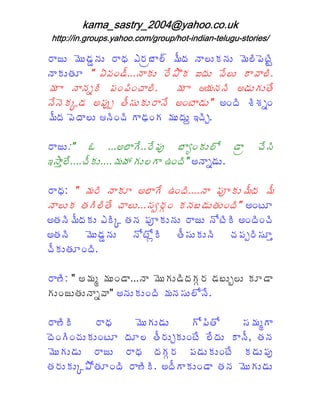 kama_sastry_2004@yahoo.co.uk
http://in.groups.yahoo.com/group/hot-indian-telugu-stories/
రాజు మొడ్డను రాధ ఎర్రటాల్ మీద నాలుకను మెలిపెట్టి
నాకుతూ " ఏమండీ...నాకు రేపొక ఐదు వేలు కావాలి.
మా నాన్నకి పంపించాలి. మా ఆయనని అడుగుతే
నేనెక్కడ అప్పు తీసుకురానే అంటాడు" అంది శిశ్నం
మీద పెదాలు ఆనించి గాఢంగ ముద్దు ఇచ్చి.
రాజు:" ఓ ...అలాగే..రేపు బ్యాంకులో డ్రా చేసి
ఇస్తాలే....చీకు....మహ్ గులగా ఉంది" అన్నాడు.
రాధ: " మరి నాకూ అలాగే ఉంది....నా పూకుమీద మీ
నాలుక తగిలితే చాలు...స్వర్గం కనబడుతుంది" అంటూ
అతని మీదకు ఎక్కి తన పూకును రాజు నోటికి అందించి
అతని మొడ్డను నోట్లోకి తీసుకుని చప్పరిస్తూ
చీకుతూంది.
రాణి: " అమ్మ ముండా...నా మొగుడిదగ్గర డబ్బులు కూడా
గుంజుతున్నావా" అనుకుంది మనసులోనే.
రాణికి రాధ మొగుడు గోపితో సమ్మగా
దెంగించుకుంటూ దూల తీర్చుకుంటే లేదు కానీ, తన
మొగుడు రాజు రాధ దగ్గర పడుకుంటే కడుపు
తరుక్కుపోతూంది రాణికి. అదీగాకుండా తన మొగుడు